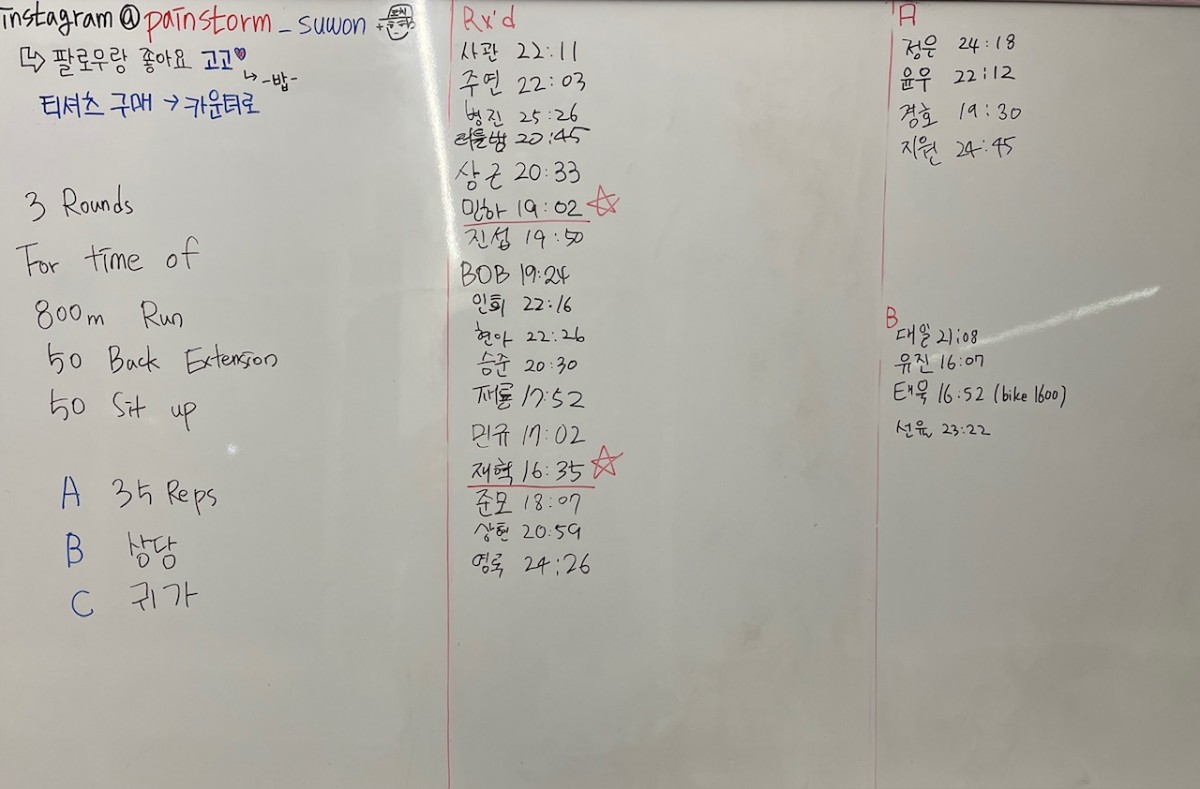 instagram @ painstorm_suwon +
↳ 팔로우랑 좋아요 고고♥
↳ -밥-
티셔츠 구매 → 카운터로
3 Rounds
For time of
800m Run
50 Back Extension
50 Sit up
A 35 Reps
B 상담
C 귀가
Rx'd
사관 22:11
주연 22:03
병진 25:26
리틀밥 20:45
상근 20:33
민하 19:02 ☆
진섭 19:50
BOB 19:24
인희 22:16
현아 22:26
승준 20:30
재룡 17:52
민규 17:02
재혁 16:35 ☆
준모 18:07
상현 20:59
영록 24:26
A
정은 24:18
윤우 22:12
경호 19:30
지원 24:45
B
대일 21:08
유진 16:07
태욱 16:52 (bike 1600)
선율 23:22